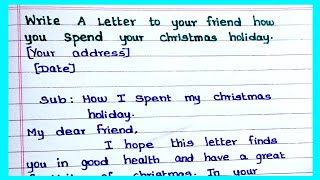 Write A Letter to your friend how
you Spend your christmas holiday.
[Your address]
[Date]
Sub: How I spent my christmas
holiday.
My dear friend,
I hope this letter finds
you in good health and have a great
of christmas. In your